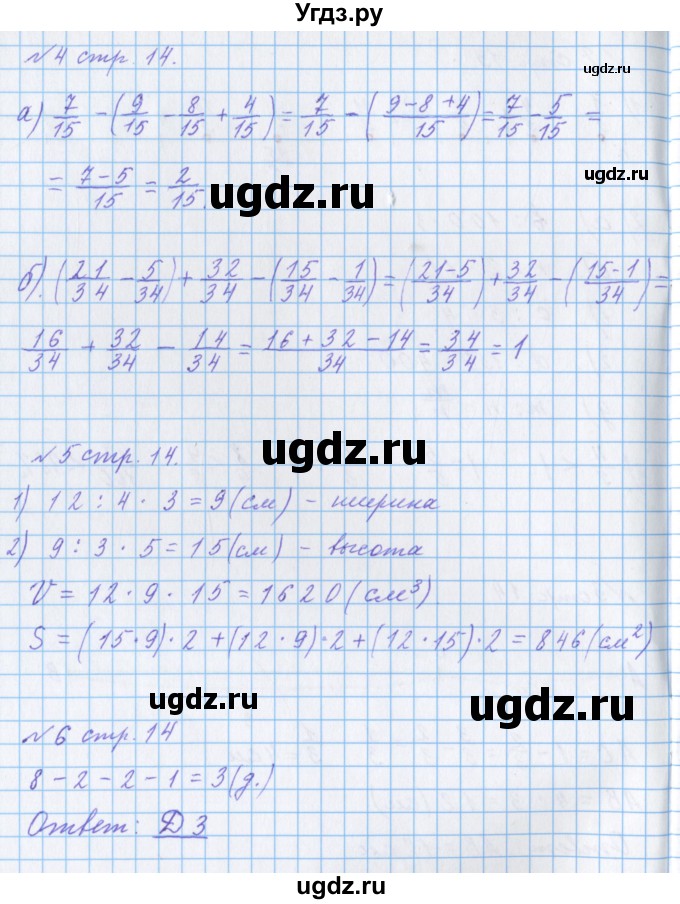 Угдз.ру
№4 стр. 14.
ugdz.ru
а) 7/15 - (9/15 - 8/15 + 4/15) = 7/15 - ((9-8+4)/15) = 7/15 - 5/15 =
= (7-5)/15 = 2/15.
ugdz.ru
ugdz.ru
б). (21/34 - 5/34) + 32/34 - (15/34 - 1/34) = ((21-5)/34) + 32/34 - ((15-1)/34) =
16/34 + 32/34 - 14/34 = (16+32-14)/34 = 34/34 = 1
ugdz.ru
№5 стр. 14.
1) 12 : 4 · 3 = 9 (см) - ширина
2) 9 : 3 · 5 = 15 (см) - высота
V = 12 · 9 · 15 = 1620 (см³)
S = (15·9)·2 + (12·9)·2 + (12·15)·2 = 846 (см²)
ugdz.ru
ugdz.ru
№6 стр. 14
8 - 2 - 2 - 1 = 3 (д.)
Ответ: Д 3
ugdz.ru
ugdz.ru